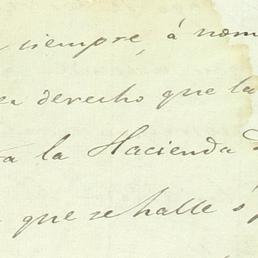 siempre, á nom
derecho que la
la Hacienda
que se halle